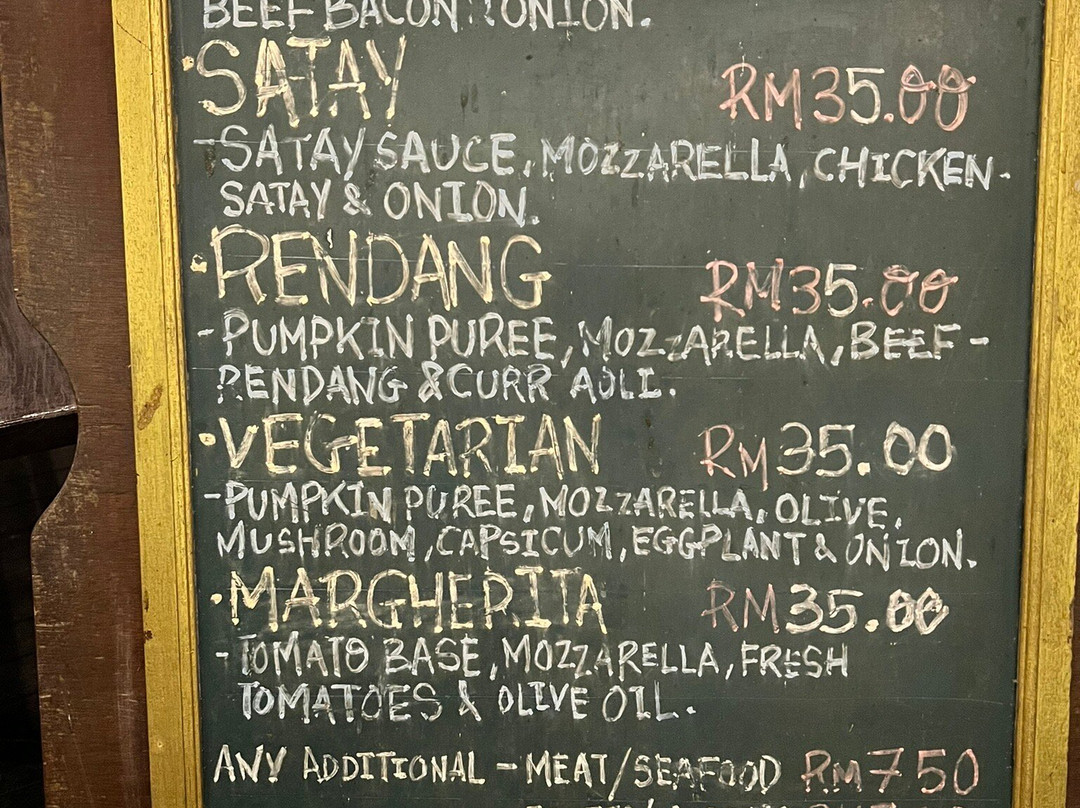 BEEF BACON & ONION.
• SATAY RM35.00
- SATAY SAUCE, MOZZARELLA, CHICKEN-
SATAY & ONION.
• RENDANG RM35.00
- PUMPKIN PUREE, MOZZARELLA, BEEF-
RENDANG & CURR AOLI.
• VEGETARIAN RM35.00
- PUMPKIN PUREE, MOZZARELLA, OLIVE,
MUSHROOM, CAPSICUM, EGGPLANT & ONION.
• MARGHERITA RM35.00
- TOMATO BASE, MOZZARELLA, FRESH
TOMATOES & OLIVE OIL.
ANY ADDITIONAL - MEAT/SEAFOOD RM750